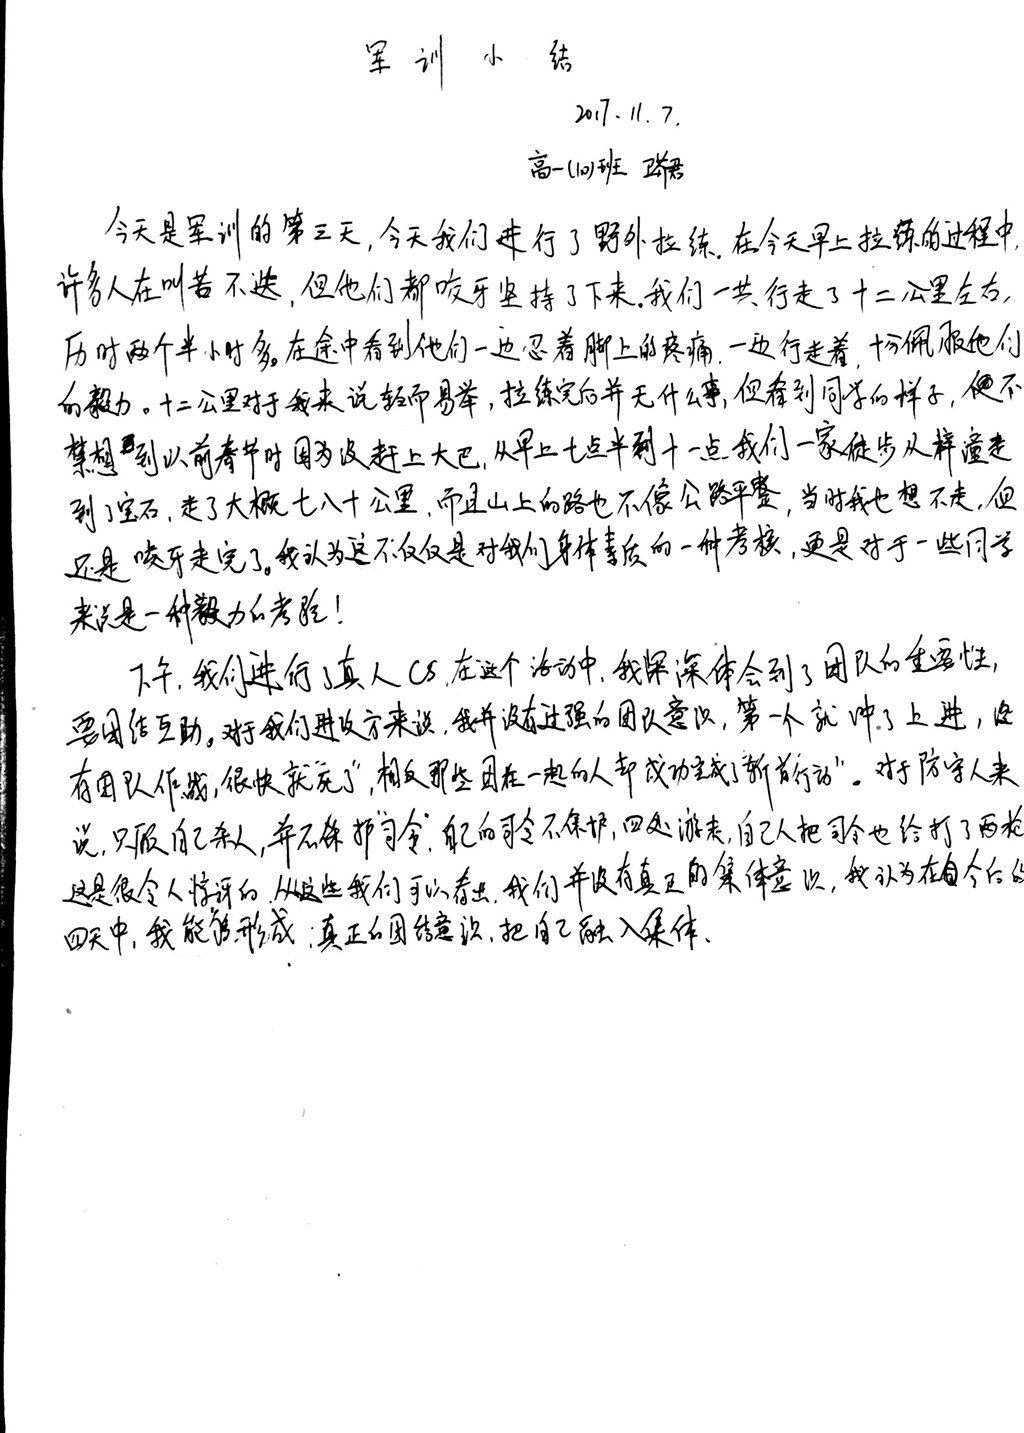 军训小结
2017.11.7.
高一(10)班
今天是军训的第三天,今天我们进行了野外拉练.在今天早上拉练的过程中,
许多人在叫苦不迭,但他们都咬牙坚持了下来.我们一共行走了十二公里左右,
历时两个半小时多。在途中看到他们一边忍着脚上的疼痛,一边行走着,十分佩服他们
的毅力。十二公里对于我来说轻而易举,拉练完后并无什么事,但看到同学的样子,便不
禁想到以前春节时因为没赶上大巴,从早上七点半到十一点我们一家徒步从梓潼走
到了宝石,走了大概七八十公里,而且山上的路也不像公路平整,当时我也想不走,但
还是咬牙走完了。我认为这不仅仅是对我们身体素质的一种考核,更是对于一些同学
来说是一种毅力的考验!
下午,我们进行了真人CS,在这个活动中,我深深体会到了团队的重要性,
要团结互助。对于我们进攻方来说,我并没有过强的团队意识,第一个就冲了上进,没
有团队作战,很快就"死了",相反那些团在一起的人却成功完成了"斩首行动"。对于防守人来
说,只顾自己杀人,并不保护"司令",自己的司令不保护,四处游走,自己人把司令也给打了两枪
这是很令人惊讶的,从这些我们可以看出,我们并没有真正的集体意识,我认为在今后的
四天中,我能够形成真正的团结意识,把自己融入集体、